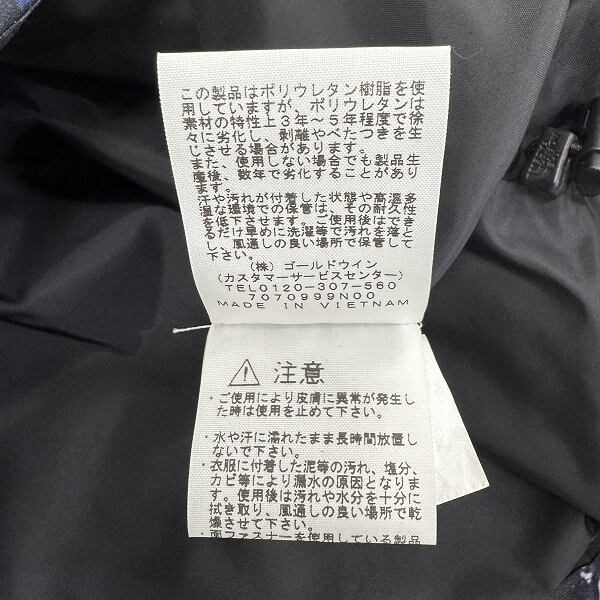 この製品はポリウレタン樹脂を使
用していますが、ポリウレタンは
素材の特性上3年～5年程度で徐
々に劣化し、剥離やべたつきを生
じさせる場合があります。
また、使用しない場合でも製品生
産後、数年で劣化することがあり
ます。
汗や汚れが付着した状態や高温多
湿な環境での保管は、その耐久性
を低下させます。ご使用後はでき
るだけ早めに洗濯等で汚れを落と
し、風通しの良い場所で保管して
下さい。
(株) ゴールドウイン
(カスタマーサービスセンター)
TEL0120-307-560
7070999N00
MADE IN VIETNAM
注意
・ご使用により皮膚に異常が発生し
た時は使用を止めて下さい。
・水や汗に濡れたまま長時間放置し
ないで下さい。
・衣服に付着した泥等の汚れ、塩分、
カビ等により漏水の原因となりま
す。使用後は汚れや水分を十分に
拭き取り、風通しの良い場所で乾
燥させて下さい。
・面ファスナーを使用している製品